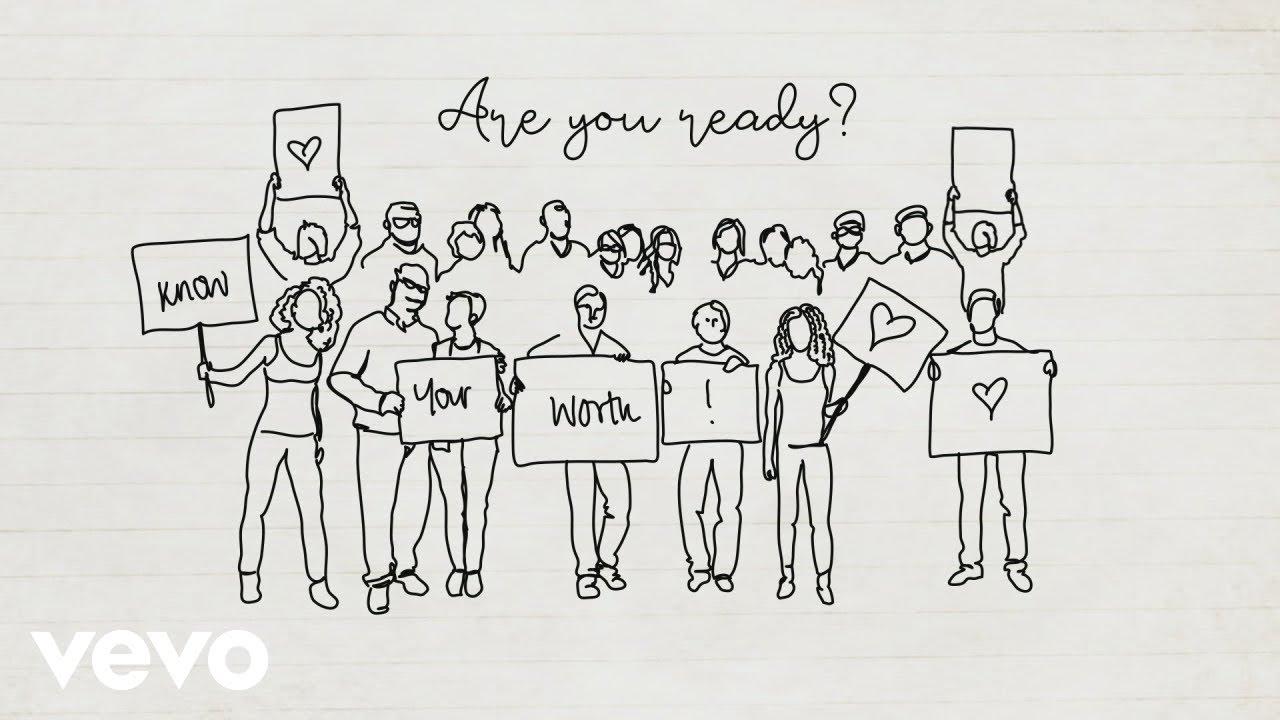 Are you ready?
know
Your
worth
!
vevo